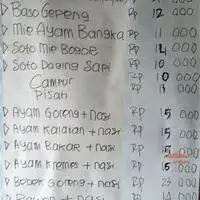 ▷ Baso Gepeng Rp 12 000
▷ Mie Ayam Bangka Rp 11 000
▷ Soto Mie Bogor Rp 14 000
▷ Soto Daging Sapi Rp 10 000
Campur Rp 10 000
Pisah Rp 13 000
▷ Ayam Goreng + nasi Rp 15 000
▷ Ayam Kalasan + nasi Rp 15 000
▷ Ayam Bakar + nasi Rp 15 000
▷ Ayam Kremes + nasi Rp 15 000
▷ Bebek Goreng + nasi Rp 23 000
+ nasi Rp 14 000